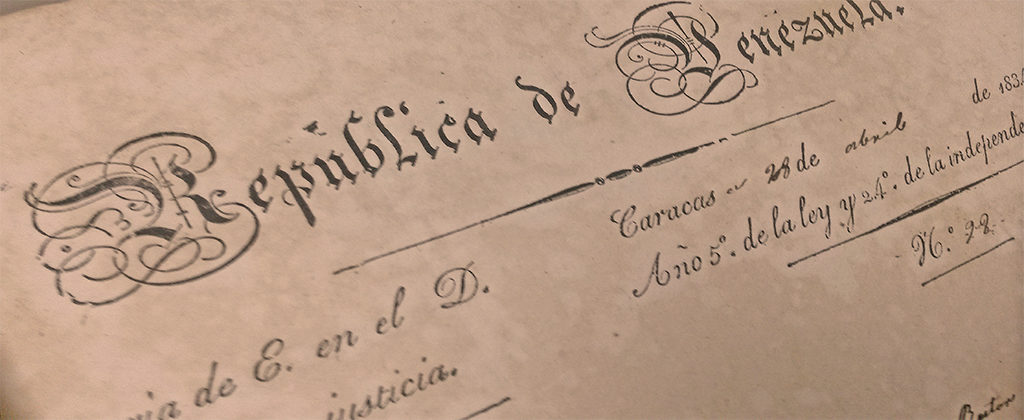 República de Venezuela.
Caracas a 28 de abril de 183
Año 5º. de la ley y 24º. de la independe
N.º 28.
ria de E. en el D.
justicia.